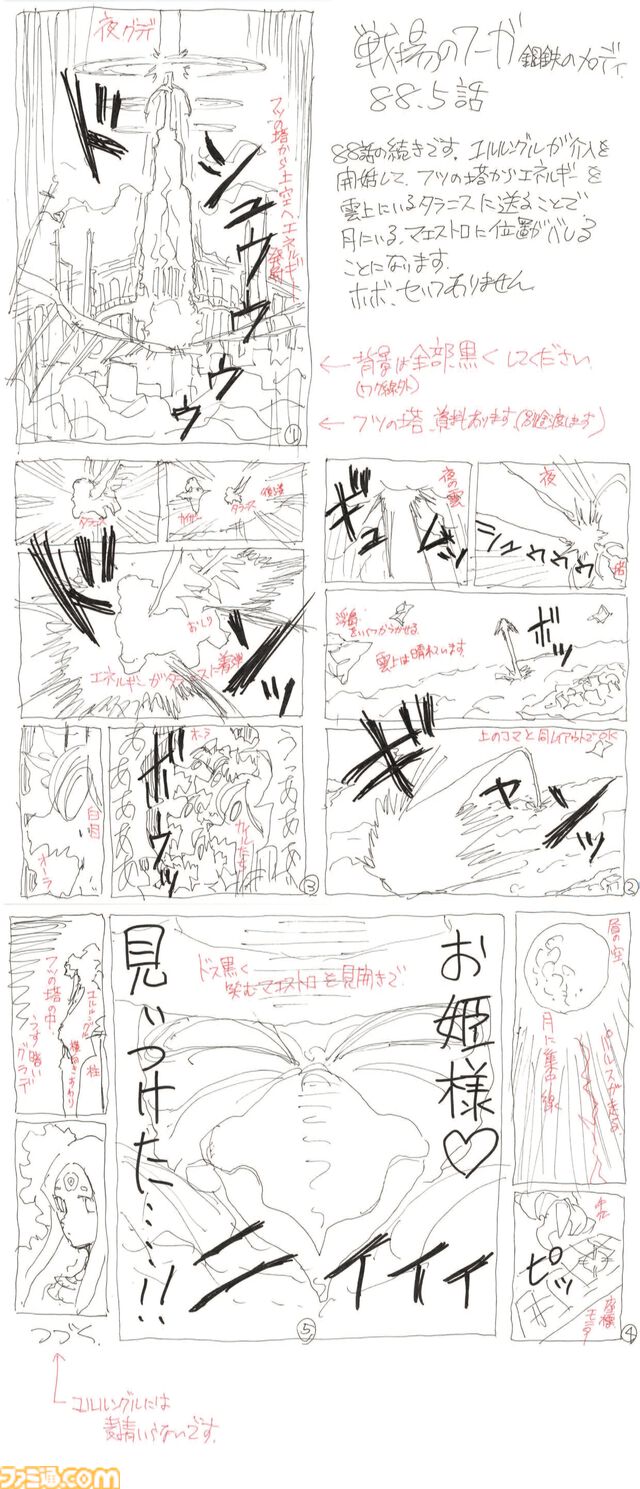 戦場のフーガ 鋼鉄のメロディ
88.5話
88話の続きです。エルルングルが介入を
開始して、フツの塔からエネルギーを
雲上にいるタラニスに送ることで
月にいる、マエストロに位置がバレる
ことになります。
ホボ、セリフありません
夜グラデ
フツの塔から上空へエネルギー発射
ドシュウウウウ
①
← 背景は全部黒くしてください
(ワク線外)
← フツの塔、資料あります(別途渡します)
夜
塔
シュウウウウ
夜の雲
ギュムッ
浮島
をいくつかうかせる
雲上は晴れています
ボッ
上のコマと同レイアウトでOK
ギャンッ
②
タラニス
カイザー
タラニス
ドッ
おしり
エネルギーがタラニスに着弾
うああああ
オーラ
ボウッ
カイルたち
ああああ
白目
オーラ
③
昼の空
パルスが走る
月に集中線
ピッ
座標
モニター
④
お姫様♡
見いつけた……!!
ドス黒く
笑むマエストロを見開きで
ニイイイ
⑤
エルルングル
横向きすわり
柱
フツの塔の中、
うす暗い
グラデ
つづく
エルルングルには
表情いらないです。
ファミ通.com